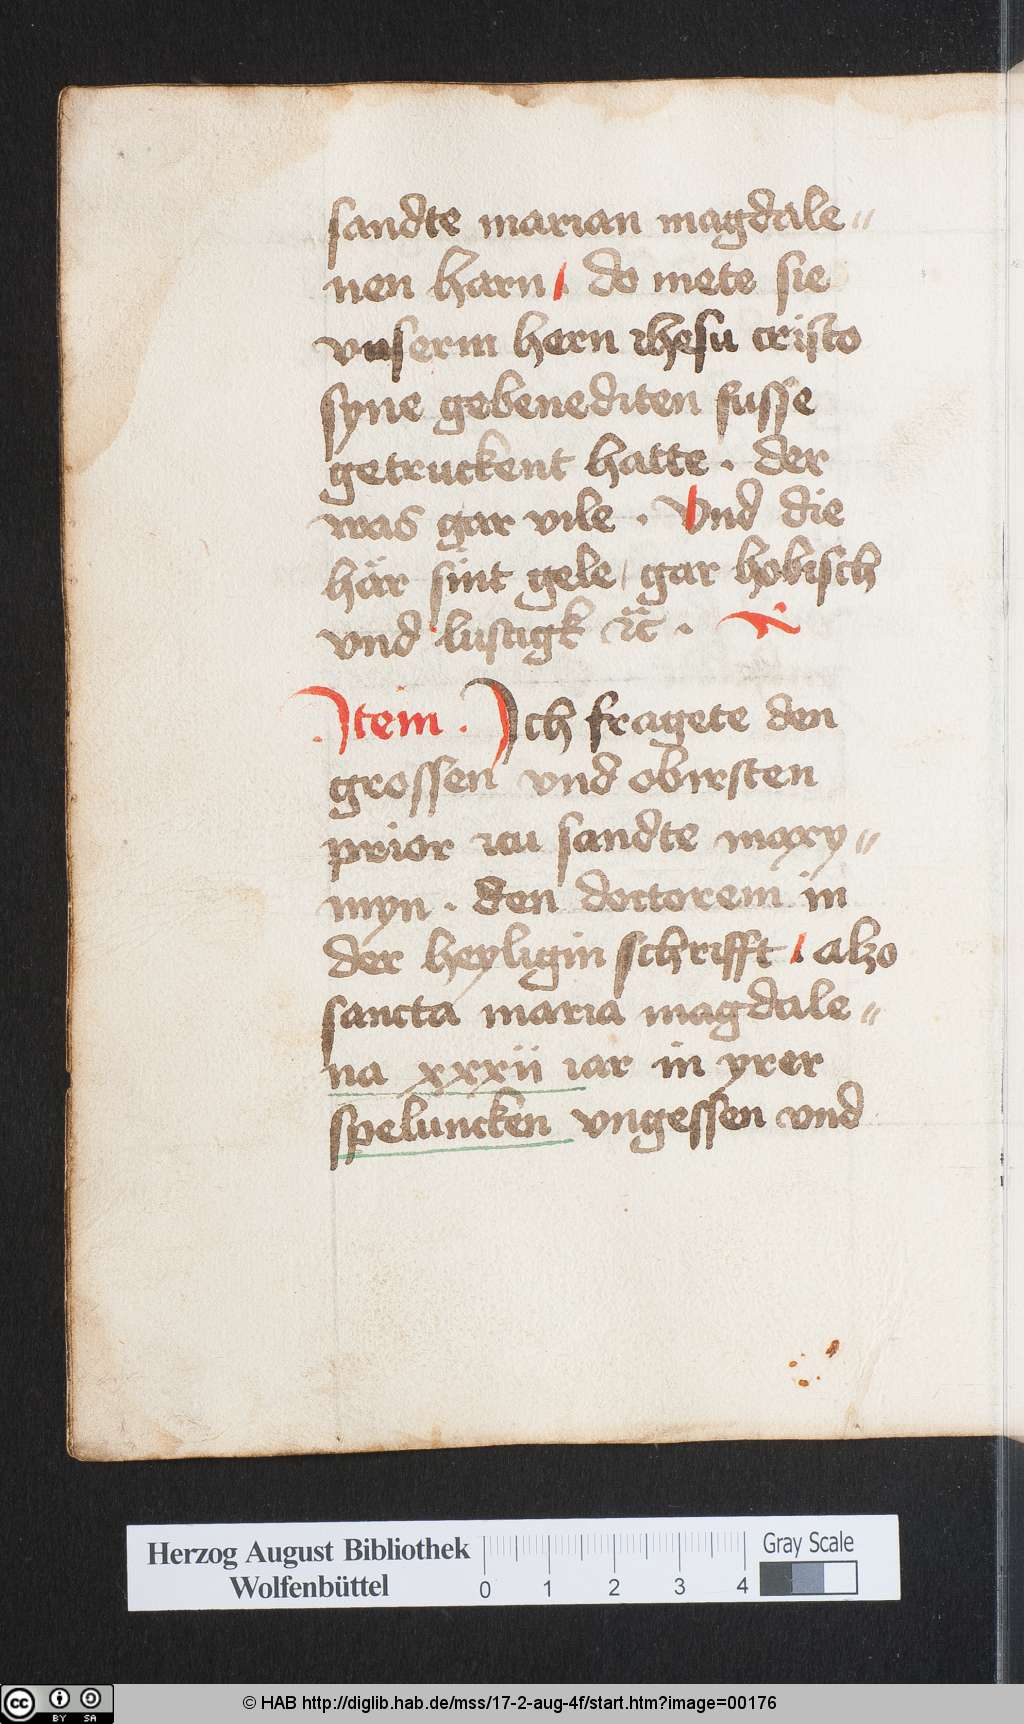 sandte marian magdale〃
nen harn . do mete sie
vnserm hern ihesu cristo
syne gebenediten fusse
getruckent hatte . der
was gar vile . Vnd die
här sint gele , gar hobisch
vnd lustigk ꝛc̃ .
Item . Ich fragete den
grossen vnd obirsten
prior zcu sandte maxy〃
myn . den doctorem in
der heyligin schrifft . alzo
sancta maria magdale〃
na xxxii iar in yrer
speluncken vngessen vnd
Herzog August Bibliothek
Wolfenbüttel
0 1 2 3 4
Gray Scale
cc BY SA
© HAB http://diglib.hab.de/mss/17-2-aug-4f/start.htm?image=00176